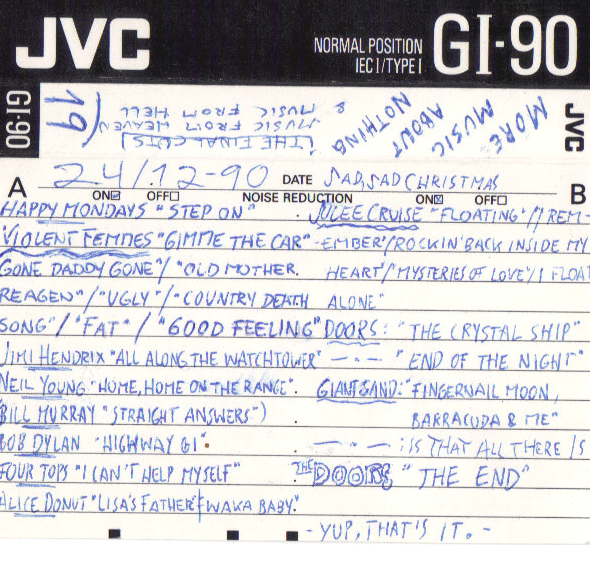 JVC
NORMAL POSITION
IEC I/TYPE I
GI-90
GI-90
19
(THE FINAL CUTS)
MUSIC FROM HEAVEN
& MUSIC FROM HELL
MORE MUSIC ABOUT NOTHING
JVC
A
24/12-90 DATE SAD, SAD CHRISTMAS
B
ON OFF NOISE REDUCTION ON OFF
HAPPY MONDAYS "STEP ON"
VIOLENT FEMMES "GIMME THE CAR"
GONE DADDY GONE"/"OLD MOTHER.
REAGEN"/"UGLY"/"COUNTRY DEATH
SONG"/"FAT"/"GOOD FEELING"
JIMI HENDRIX "ALL ALONG THE WATCHTOWER"
NEIL YOUNG "HOME, HOME ON THE RANGE".
BILL MURRAY "STRAIGHT ANSWERS")
BOB DYLAN "HIGHWAY 61".
FOUR TOPS "I CAN'T HELP MYSELF"
ALICE DONUT "LISA'S FATHER"/"WAKA BABY".
JULEE CRUISE "FLOATING"/I REM-
EMBER"/ROCKIN' BACK INSIDE MY
HEART/"MYSTERIES OF LOVE"/I FLOAT
ALONE"
DOORS: "THE CRYSTAL SHIP"
—"— "END OF THE NIGHT"
GIANT SAND: "FINGERNAIL MOON,
BARRACUDA & ME"
—"— : IS THAT ALL THERE IS
THE DOORS "THE END"
- YUP, THAT'S IT. -